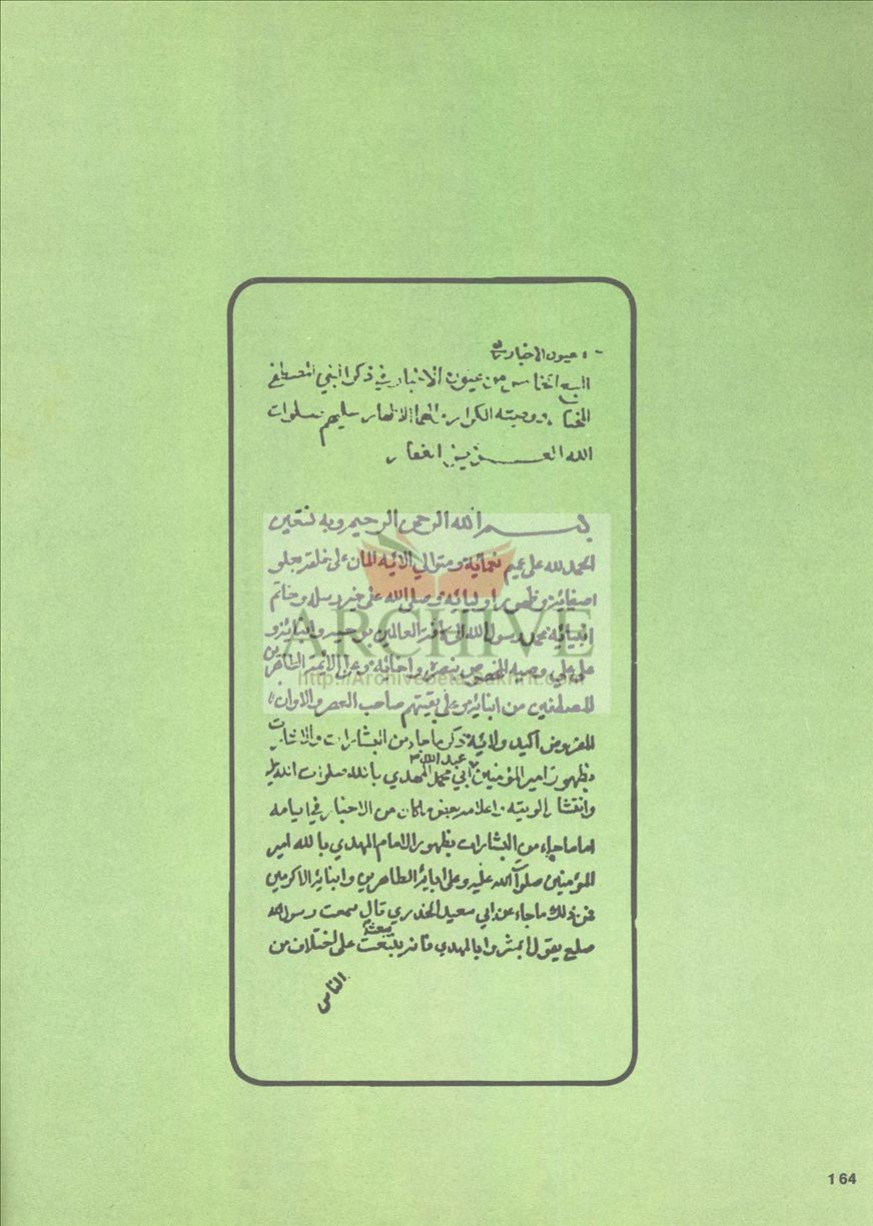 عيون الاخبار
السبع الخامس من عيون الاخبار في ذكر النبي المصطفى
المختار ووصيه الكرار الاطهار عليهم صلوات
الله العزيز الغفار
بسم الله الرحمن الرحيم وبه نستعين
الحمد لله على عميم نعمائه ومتوالي الائه المان على خلقه
اصفيائه وظهور اوليائه وصلى الله على خير رسله وخاتم
انبيائه محمد رسول الله
على علي وصيه المخصوص واخائه وعلى الائمة الطاهرين
المصطفين من ابنائه وعلى بقيتهم صاحب العصر والاوان
المفروض اكيد ولائيه ذكر ما جاء من البشارات والاشارات
بظهور امير المؤمنين ابي محمد عبد الله المهدي بالله صلوات الله عليه
وانتشار الويته واعلامه وبعض ما كان من الاخبار في ايامه
اما ما جاء من البشارات بظهور الامام المهدي بالله امير
المؤمنين صلوات الله عليه وعلى ابائه الطاهرين وابنائه الاكرمين
فمن ذلك ما جاء عن ابي سعيد الخدري قال سمعت رسول الله
صلع يقول ابشروا بالمهدي فانه يبعث على اختلاف من
الناس
ARCHIVE
http://Archivebeta.Sakhrit.com
164